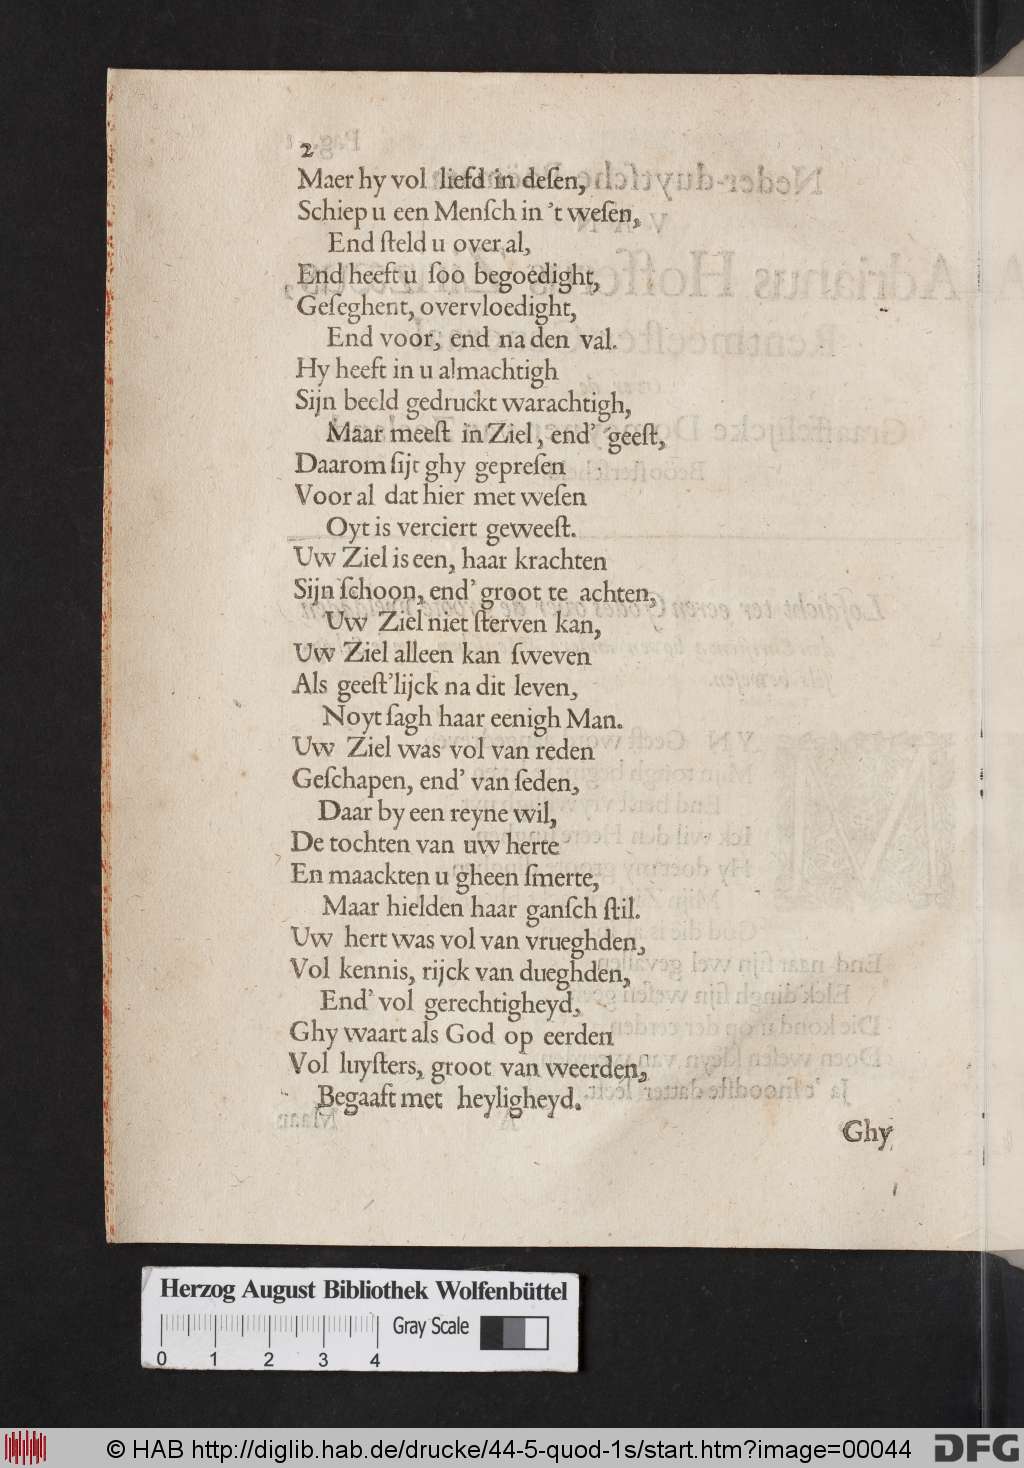 2
Maer hy vol liefd in deſen,
Schiep u een Menſch in 't weſen,
End ſteld u over al,
End heeft u ſoo begoedight,
Geſeghent, overvloedight,
End voor, end na den val.
Hy heeft in u almachtigh
Sijn beeld gedruckt warachtigh,
Maar meeſt in Ziel, end' geeſt,
Daarom ſijt ghy gepreſen
Voor al dat hier met weſen
Oyt is verciert geweeſt.
Uw Ziel is een, haar krachten
Sijn ſchoon, end' groot te achten,
Uw Ziel niet ſterven kan,
Uw Ziel alleen kan ſweven
Als geeſt'lijck na dit leven,
Noyt ſagh haar eenigh Man.
Uw Ziel was vol van reden
Geſchapen, end' van ſeden,
Daar by een reyne wil,
De tochten van uw herte
En maackten u gheen ſmerte,
Maar hielden haar ganſch ſtil.
Uw hert was vol van vrueghden,
Vol kennis, rijck van dueghden,
End' vol gerechtigheyd,
Ghy waart als God op eerden
Vol luyſters, groot van weerden,
Begaaft met heyligheyd.
Ghy
Herzog August Bibliothek Wolfenbüttel
Gray Scale
0 1 2 3 4
© HAB http://diglib.hab.de/drucke/44-5-quod-1s/start.htm?image=00044
DFG